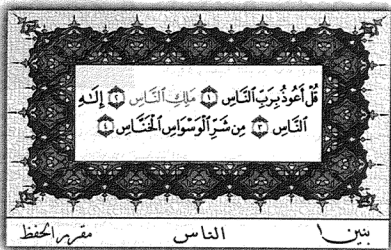 قُلْ أَعُوذُ بِرَبِّ ٱلنَّاسِ ١ مَلِكِ ٱلنَّاسِ ٢ إِلَٰهِ
ٱلنَّاسِ ٣ مِن شَرِّ ٱلْوَسْوَاسِ ٱلْخَنَّاسِ ٤
بنين ١ الناس مقرر الحفظ